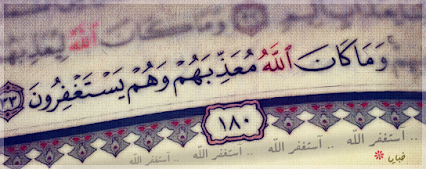 وَمَا كَانَ ٱللَّهُ لِيُعَذِّبَهُمْ
وَمَا كَانَ ٱللَّهُ مُعَذِّبَهُمْ وَهُمْ يَسْتَغْفِرُونَ ٣٣
١٨٠
.. أستغفر الله .. أستغفر الله .. أستغفر الله .. أستغفر الله
خبايا